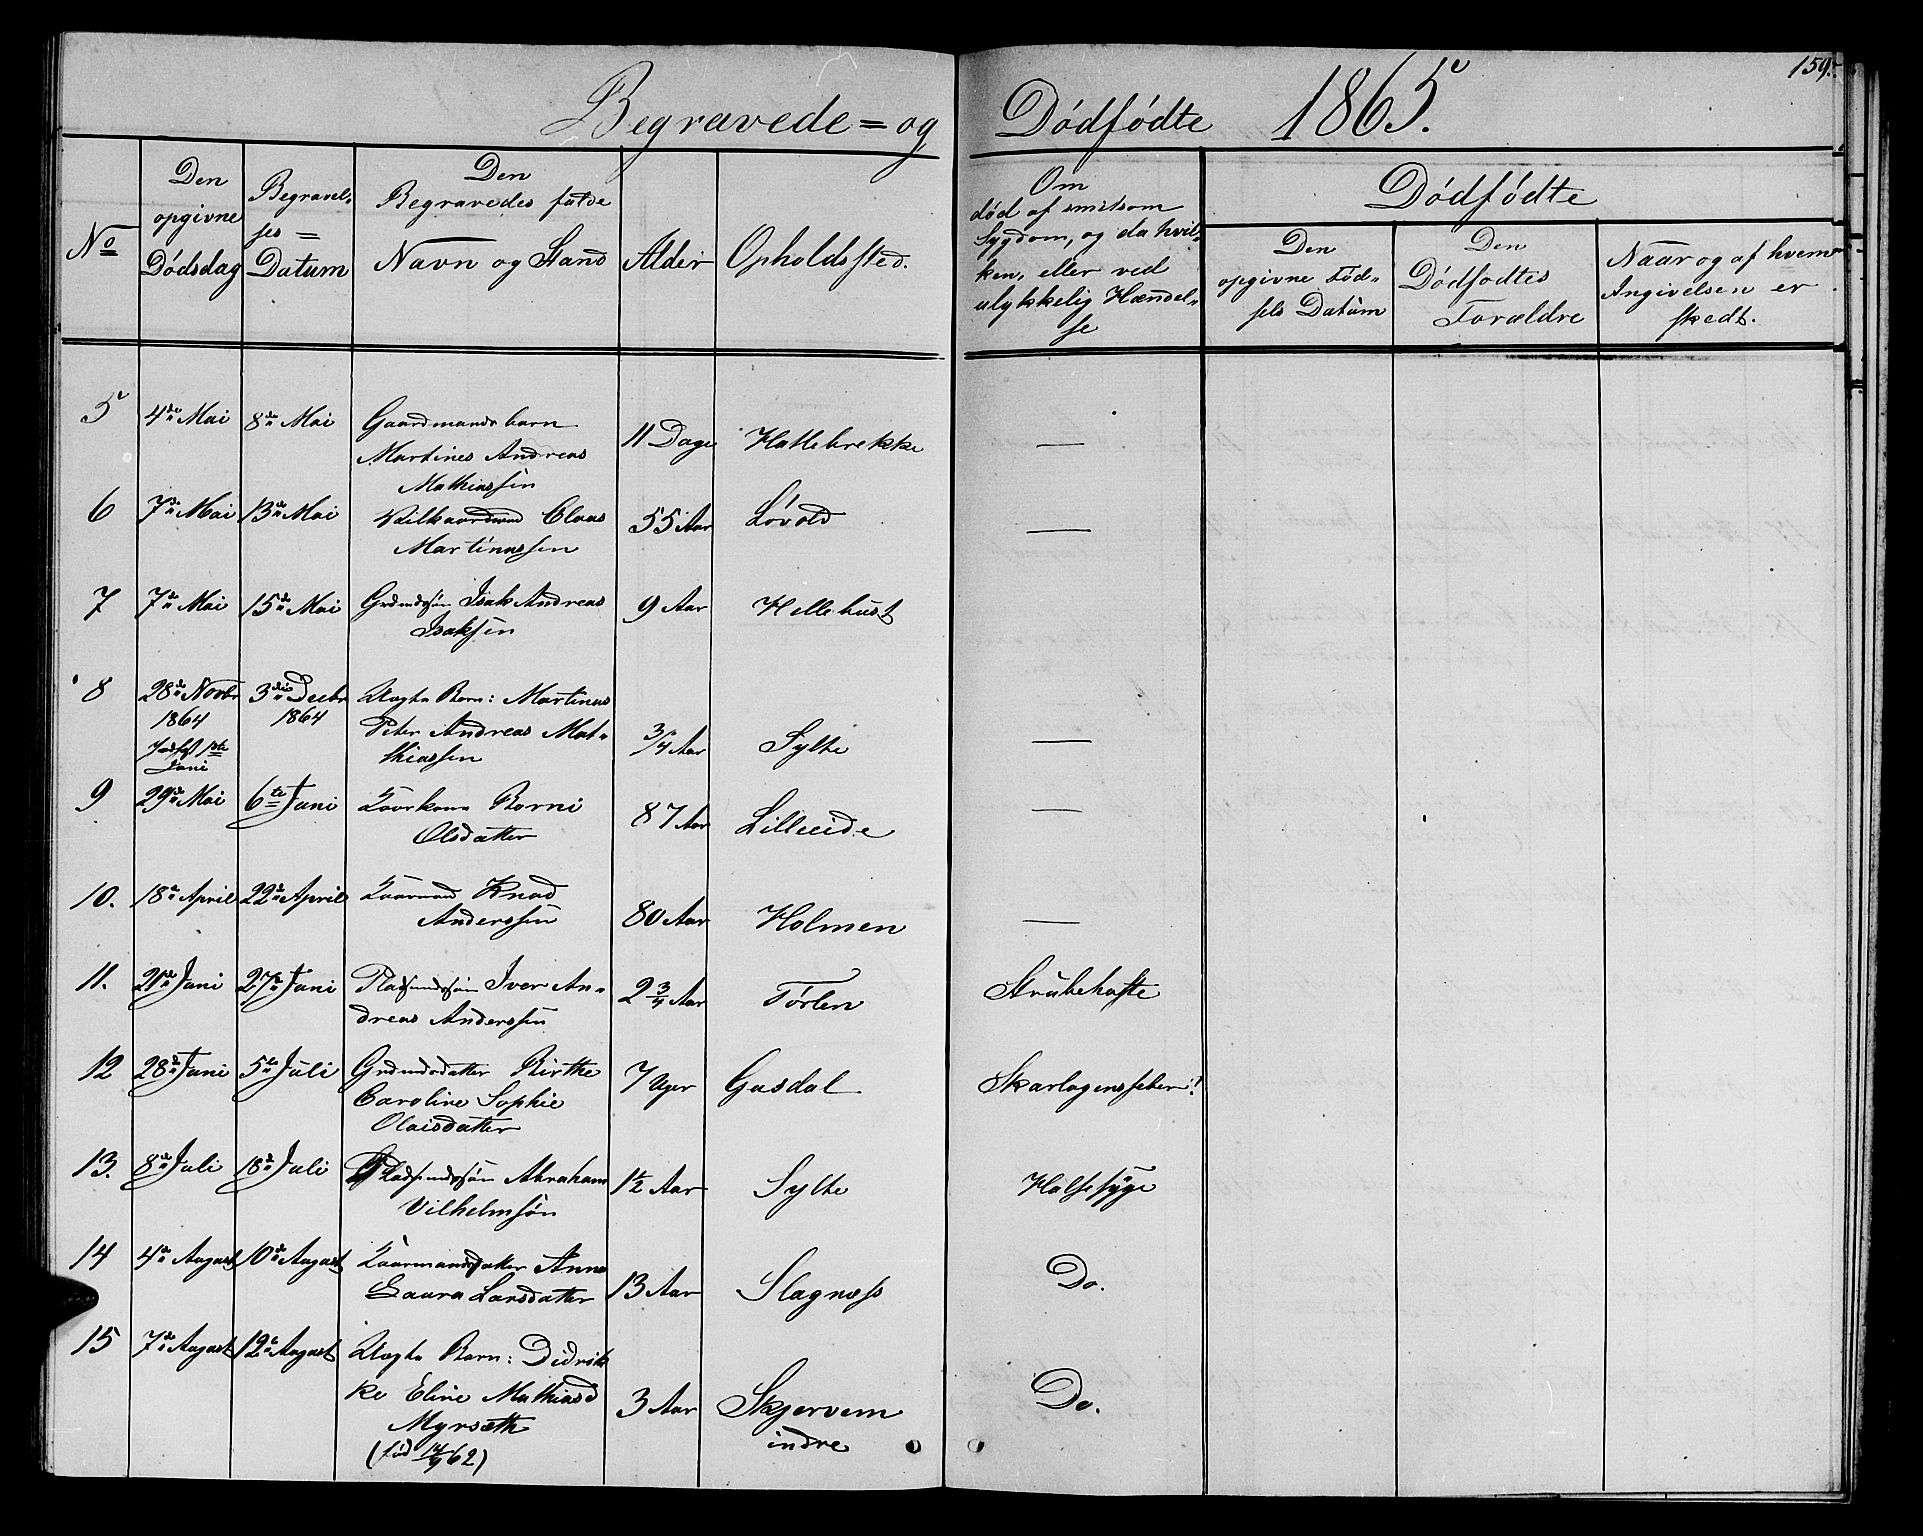 159.
Begravede = og Dödfödte 1865.
No
Den
opgivne
Dödsdag
Begravel-
ses =
Datum
Den
Begravedes fulde
Navn og Stand
Alder
Opholdssted.
Om
död af smitsom
Sygdom, og da hvil-
ken, eller ved
ulykkelig Hændel-
se
Dödfödte
Den
opgivne Föd-
sels Datum
Den
Dödfödtes
Forældre
Naar og af hvem
Angivelsen er
skedt.
5 4de Mai 8de Mai Gaardmands barn
Martines Andreas
Mathiassen
11 Dage Hattebrekke —
6 7de Mai 13de Mai Vilkaarsmand Claus
Martinussen
55 Aar Lövold —
7 7de Mai 15de Mai Grdmdssön Isak Andreas
Isaksen
9 Aar Hellehust
8 28de Novbr
1864
Jordfæst 1ste
Juni
3die Decbr
1864
Uægte Barn: Martinus
Peter Andreas Mat-
thiassen
3/4 Aar Sylte —
9 29de Mai 6te Juni Kaarkone Berni
Olsdatter
87 Aar Lilleeide —
10. 18de April 22de April Kaarmand Knud
Anderssen
80 Aar Holmen —
11. 21de Juni 27de Juni Pladsmdssön Iver An-
dreas Anderssen
2 3/4 Aar Törlen Strubehoste
12 28de Juni 5te Juli Grdmdsdatter Birthe
Caroline Sophie
Olaisdatter
7 Uger Gusdal Skarlagensfeber!
13. 8de Juli 18de Juli Pladsmdssön Abraham
Vilhelmsön
1½ Aar Sylte Halsesyge
14 4de August 10de August Kaarmandsdatter Anne
Laura Larsdatter
13 Aar Slagnæss Do.
15 7de August 12te August Uægte Barn: Didrik-
ke Eline Mathiasd
Myrsæth
(föd 14/9 62)
3 Aar Skjervem
indre
Do.